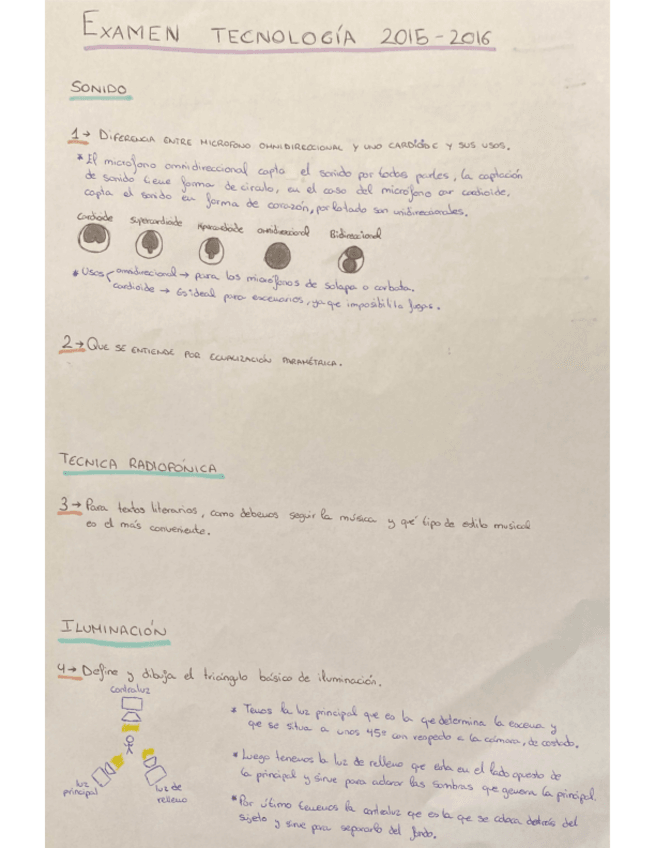 EXAMEN TECNOLOGÍA 2015-2016
SONIDO
1→ DIFERENCIA ENTRE MICROFONO OMNIDIRECCIONAL Y UNO CARDIOIDE Y SUS USOS.
* El microfono omnidireccional capta el sonido por todos partes, la captación
de sonido tiene forma de circulo, en el caso del microfono cardioide,
capta el sonido en forma de corazón, por lo tado son unidireccionales.
Cardiode Supercardiode Hipercardiode omnidireccional Bidireccional
* Usos omnidirecional → para los microfonos de solapa o corbata.
cardioide → Es ideal para escenarios, ya que imposibilita fugas.
2→ QUE SE ENTIENDE POR ECUALIZACIÓN PARAMÉTRICA.
TECNICA RADIOFÓNICA
3→ Para textos literarios, como debemos seguir la música y qué tipo de estilo musical
es el más conveniente.
ILUMINACIÓN
4→ Define y dibuja el triángulo básico de iluminación.
contraluz
luz
principal
luz de
relleno
* Temos la luz principal que es la que determina la escena y
que se situa a unos 45º con respecto a la cámara, de costado.
* Luego tenemos la luz de relleno que esta en el lado opuesto de
la principal y sirve para aclarar las sombras que genera la principal.
* Por último tenemos la contraluz que es la que se coloca detrás del
sujeto y sirve para separarlo del fondo.